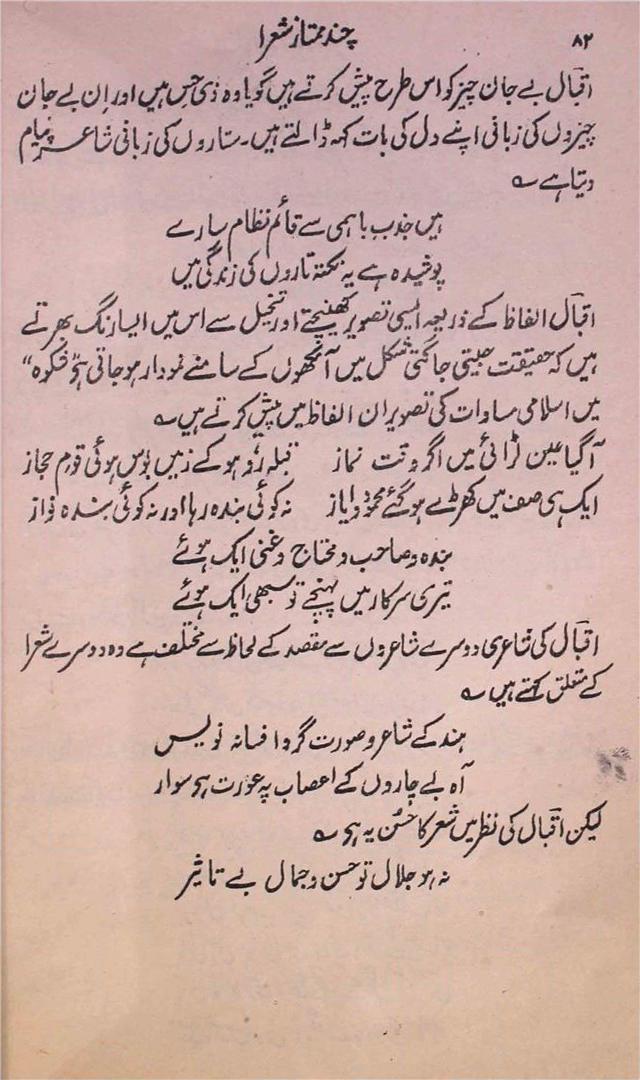 ۸۲ چند ممتاز شعرا
اقبال بے جان چیز کو اس طرح پیش کرتے ہیں گویا وہ ذی حس ہیں اور ان بے جان
چیزوں کی زبانی اپنے دل کی بات کہہ ڈالتے ہیں۔ ستاروں کی زبانی شاعر پیام
دیتا ہے ؎
ہیں جذب باہمی سے قائم نظام سارے
پوشیدہ ہے یہ نکتہ تاروں کی زندگی میں
اقبال الفاظ کے ذریعہ ایسی تصویر کھینچتے اور تخیل سے اس میں ایسا رنگ بھرتے
ہیں کہ حقیقت جیتی جاگتی شکل میں آنکھوں کے سامنے نمودار ہو جاتی ہے ”شکوہ“
میں اسلامی مساوات کی تصویر ان الفاظ میں پیش کرتے ہیں ؎
آ گیا عین لڑائی میں اگر وقت نماز قبلہ رو ہو کے زمیں بوس ہوئی قوم حجاز
ایک ہی صف میں کھڑے ہو گئے محمود و ایاز نہ کوئی بندہ رہا اور نہ کوئی بندہ نواز
بندہ و صاحب و محتاج و غنی ایک ہوئے
تیری سرکار میں پہنچے تو سبھی ایک ہوئے
اقبال کی شاعری دوسرے شاعروں سے مقصد کے لحاظ سے مختلف ہے وہ دوسرے شعرا
کے متعلق کہتے ہیں ؎
ہند کے شاعر و صورت گر و افسانہ نویس
آہ بے چاروں کے اعصاب پہ عورت ہے سوار
لیکن اقبال کی نظر میں شعر کا حسن یہ ہے ؎
نہ ہو جلال تو حسن و جمال بے تاثیر